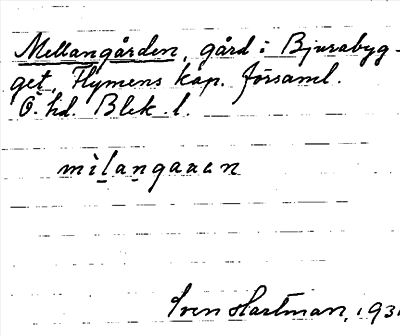 Mellangården, gård i Bjurabyg-
get, Flymens kap. församl.
Ö. hd. Blek. l.
Sven Hartman, 193